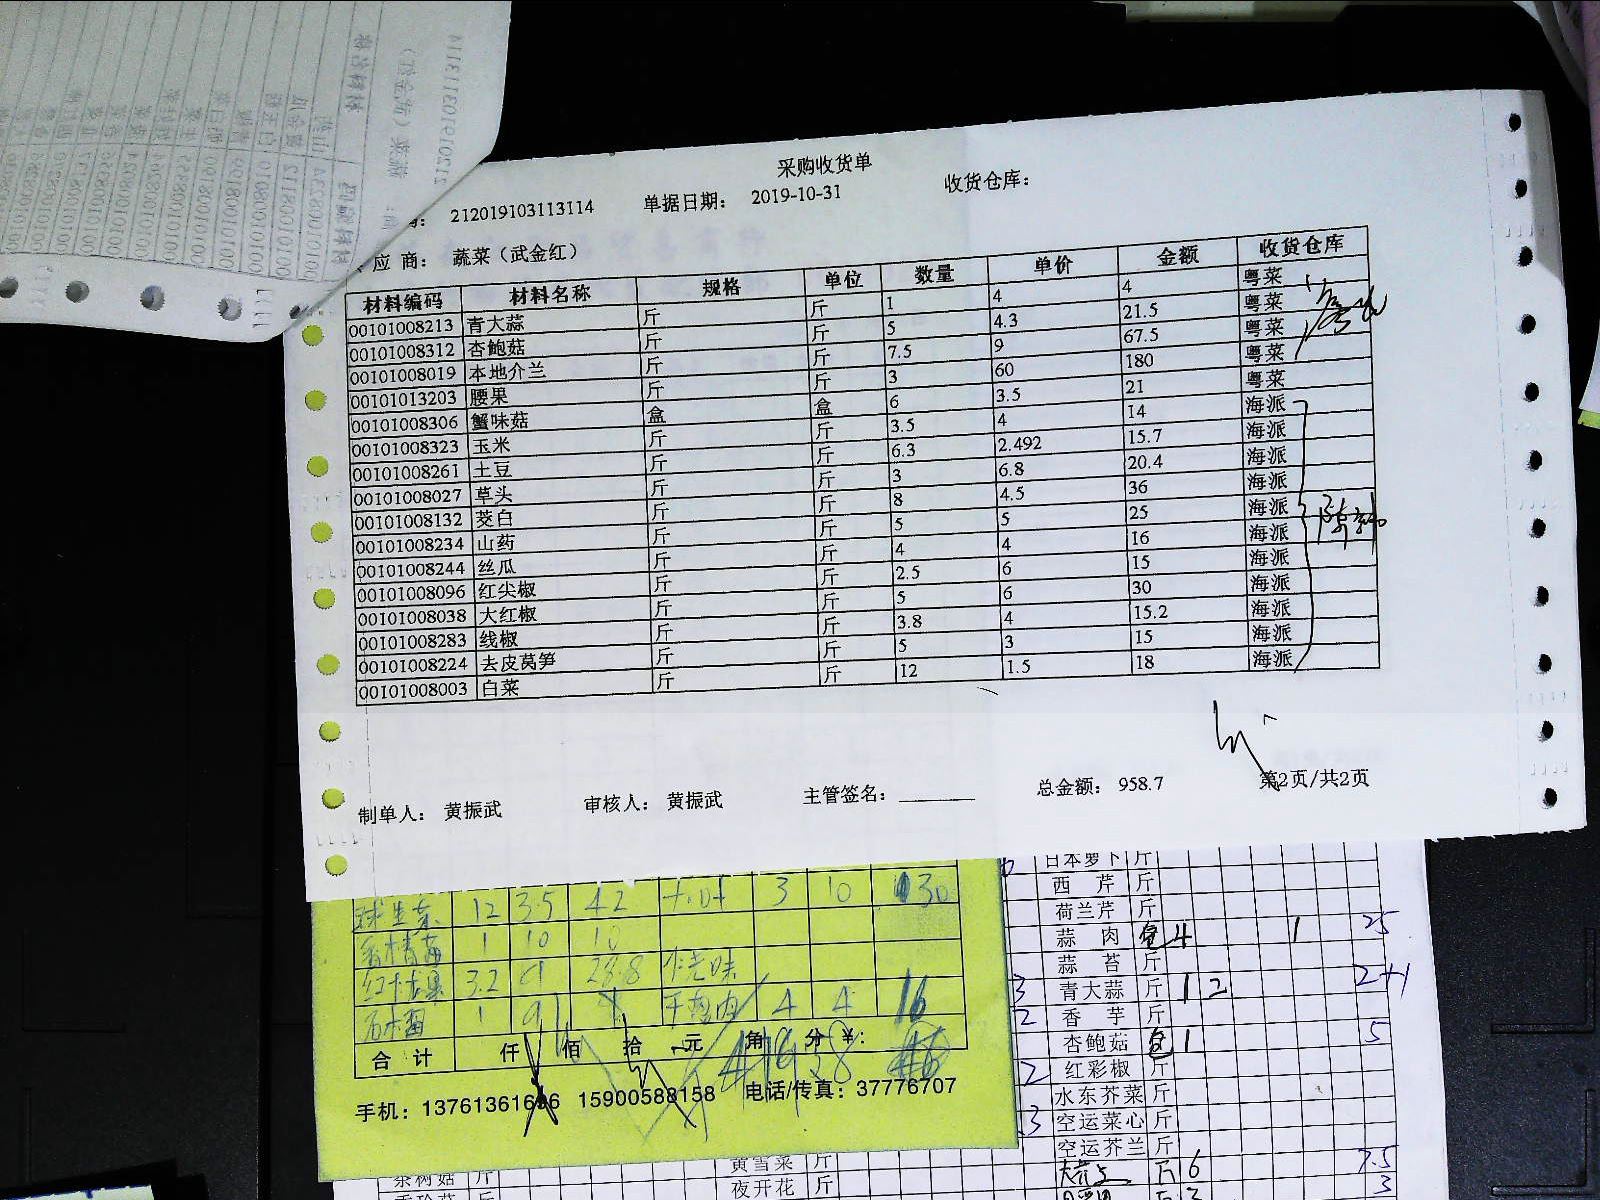 采购收货单
212019103113114 单据日期: 2019-10-31 收货仓库:
应商: 蔬菜（武金红）
材料编码 材料名称 规格 单位 数量 单价 金额 收货仓库
00101008213 青大蒜 斤 斤 1 4 4 粤菜
00101008312 杏鲍菇 斤 斤 5 4.3 21.5 粤菜
00101008019 本地介兰 斤 斤 7.5 9 67.5 粤菜
00101013203 腰果 斤 斤 3 60 180 粤菜
00101008306 蟹味菇 盒 盒 6 3.5 21 粤菜
00101008323 玉米 斤 斤 3.5 4 14 海派
00101008261 土豆 斤 斤 6.3 2.492 15.7 海派
00101008027 草头 斤 斤 3 6.8 20.4 海派
00101008132 茭白 斤 斤 8 4.5 36 海派
00101008234 山药 斤 斤 5 5 25 海派
00101008244 丝瓜 斤 斤 4 4 16 海派
00101008096 红尖椒 斤 斤 2.5 6 15 海派
00101008038 大红椒 斤 斤 5 6 30 海派
00101008283 线椒 斤 斤 3.8 4 15.2 海派
00101008224 去皮莴笋 斤 斤 5 3 15 海派
00101008003 白菜 斤 斤 12 1.5 18 海派
制单人: 黄振武 审核人: 黄振武 主管签名: 总金额: 958.7 第2页/共2页
球生菜 12 3.5 42 3 10 30
1 10 10
3.2 9 28.8
1 9 4 4 16
合计 仟 佰 拾 元 角 分 ¥:
手机: 13761361666 15900588158 电话/传真: 37776707
日本萝卜 斤
西芹 斤
荷兰芹 斤
蒜肉 包 4 1 25
蒜苔 斤
3 青大蒜 斤 1 2 2+1
2 香芋 斤
杏鲍菇 包 1 5
2 红彩椒 斤
水东芥菜 斤
3 空运菜心 斤
空运芥兰 斤
斤 6 7.5
茶树菇 斤 黄雪菜 斤
夜开花 斤 3